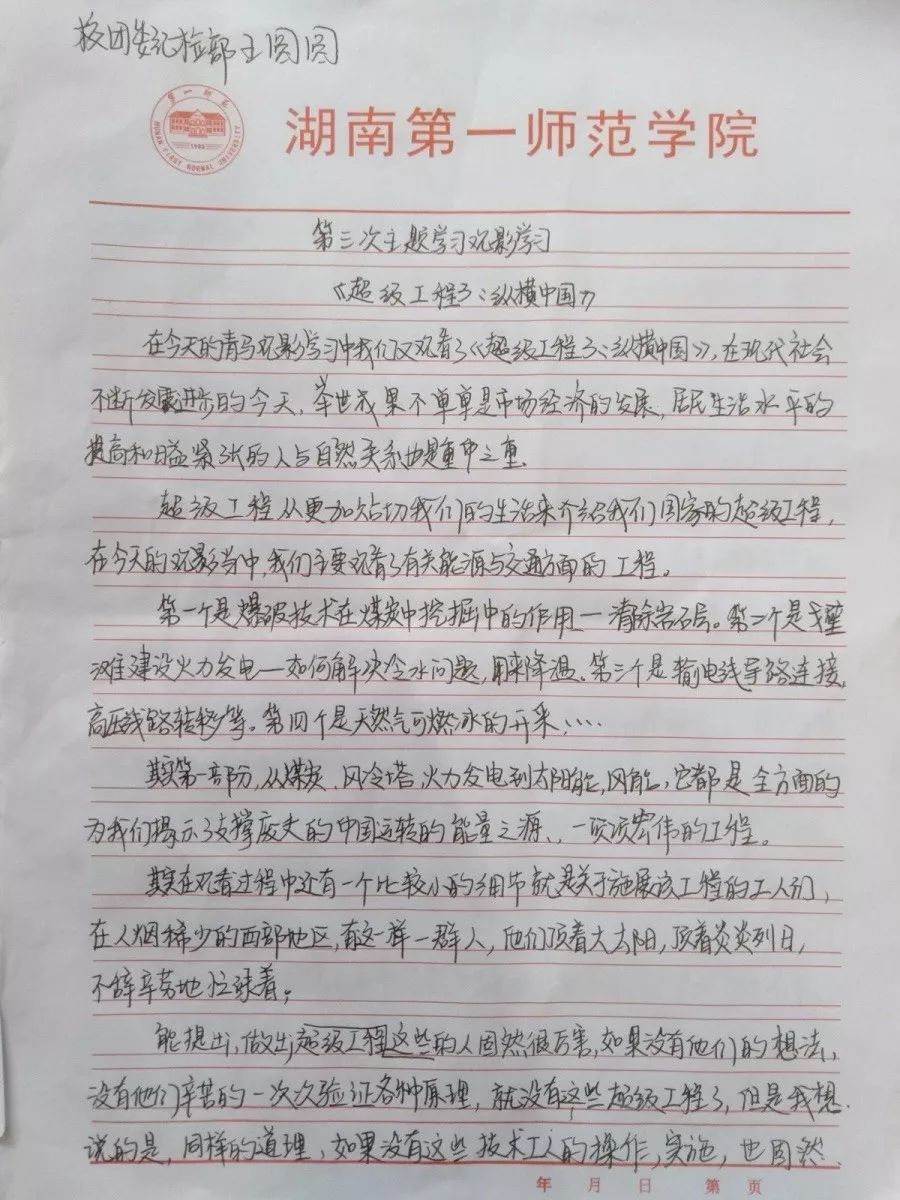 校团委纪检部王圆圆
第一师范
HUNAN FIRST NORMAL UNIVERSITY
1903
湖南第一师范学院
第三次主题学习观影学习
《超级工程3:纵横中国》
在今天的青马观影学习中我们又观看了《超级工程3:纵横中国》,在现代社会
不断发展进步的今天,举世成果不单单是市场经济的发展,居民生活水平的
提高和日益紧张的人与自然关系也是重中之重.
超级工程从更加贴切我们的生活来介绍我们国家的超级工程,
在今天的观影当中,我们主要观看了有关能源与交通方面的工程。
第一个是爆破技术在煤炭中挖掘中的作用—清除岩石层。第二个是戈壁
滩建设火力发电—如何解决冷水问题,用来降温、第三个是输电线导路连接,
高压线路转移等。第四个是天然气可燃冰的开采.....
其实第一部分,从煤炭、风冷塔,火力发电到太阳能,风能,它都是全方面的
为我们揭示了支撑庞大的中国运转的能量之源、一项项宏伟的工程。
其实在观看过程中还有一个比较小的细节就是关于施展该工程的工人们,
在人烟稀少的西部地区,有这样一群人,他们顶着大太阳,顶着炎炎列日,
不辞辛劳地忙碌着;
能提出,做出超级工程这些的人固然很厉害,如果没有他们的想法,
没有他们辛苦的一次次验证各种原理,就没有这些超级工程了,但是我想
说的是,同样的道理,如果没有这些技术工人的操作,实施,也固然
年 月 日 第 页